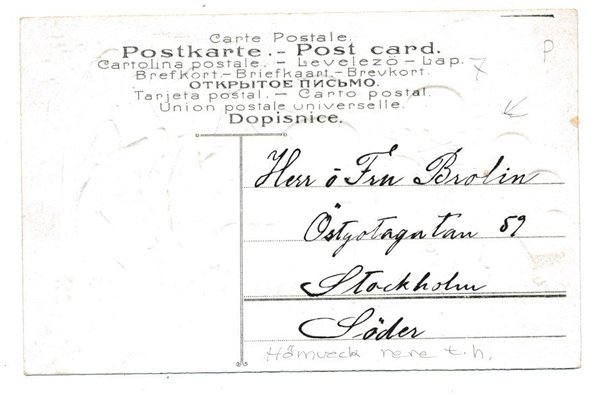 Carte Postale.
Postkarte.- Post card.
Cartolina postale. - Levelezö - Lap.
Brefkort.-Briefkaart.-Brevkort.
ОТКРЫТОЕ ПИСЬМО.
Tarjeta postal. - Carto postal.
Union postale universelle.
Dopisnice.
P
Herr ö Fru Brolin
Östgötagatan 59
Stockholm
Söder
t.h.